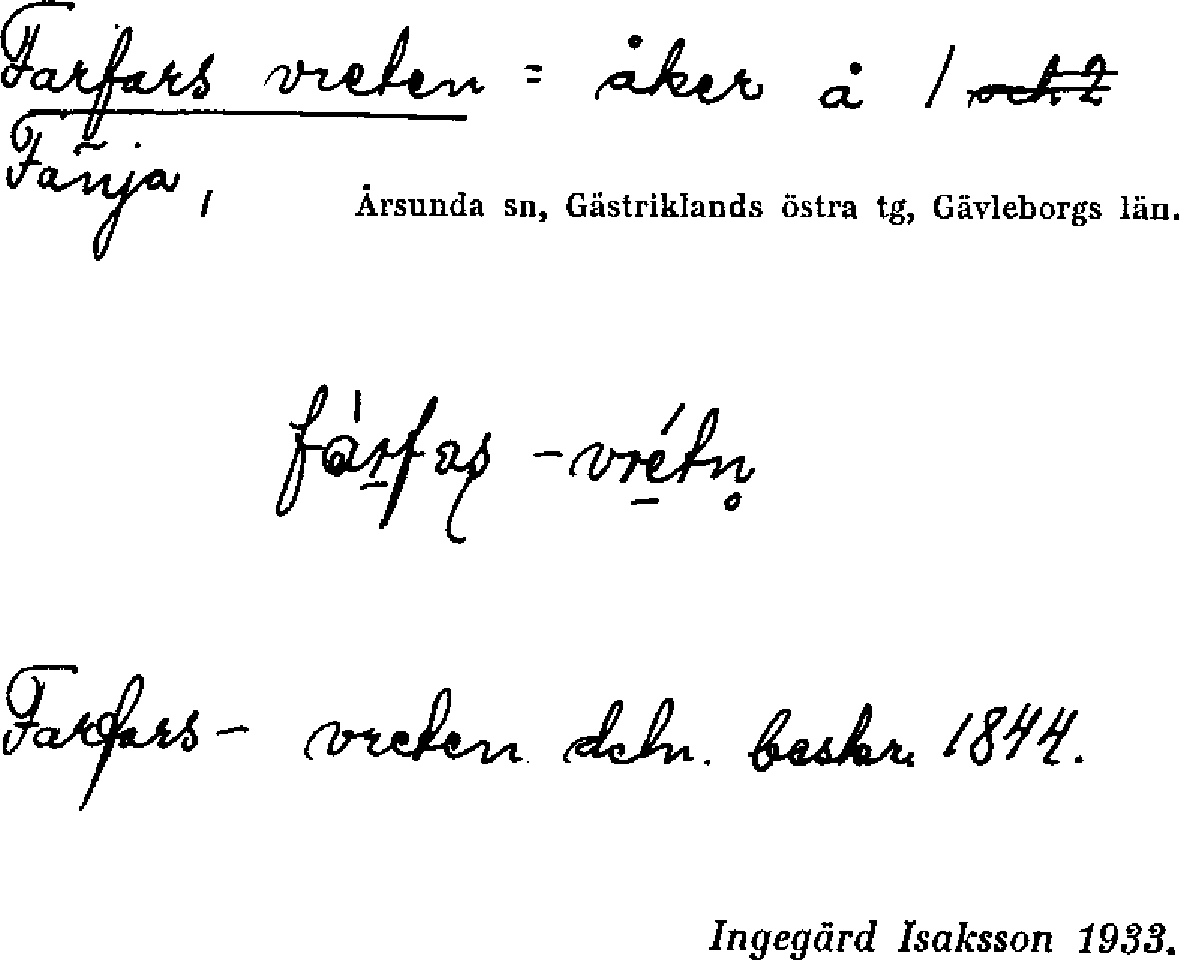 Farfars vreten = åker å 1 och 2
Fänja,
Årsunda sn, Gästriklands östra tg, Gävleborgs län.
Farfars- vreten deln. beskr. 1844.
Ingegärd Isaksson 1933.